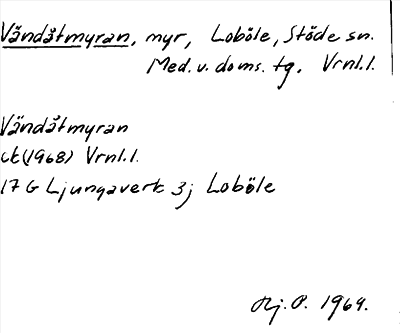 Vändåtmyran, myr, Loböle, Stöde sn.
Med. v. doms. tg. Vrnl. l.
Vändåtmyran
ek (1968) Vrnl. l.
17 G Ljungaverk 3j Loböle
Hj. P. 1969.